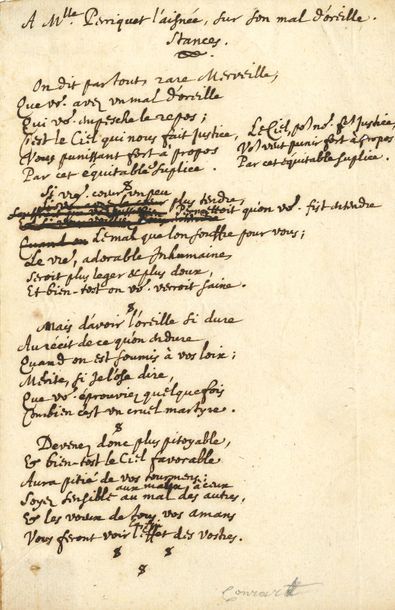 A Mlle Perriquet l'aisnée, sur son mal d'oreille.
Stances.
On dit par tout, rare Merveille,
Que vo9 avez un mal d'oreille
Qui vo9 empesche le repos;
C'est le Ciel qui nous fait justice,
Vous punissant fort à propos
Par cet équitable suplice.
Le Ciel, po. no9 fe justice,
Vo9 veut punir fort à propos
Par cet équitable suplice.
Si vre coeur un peu plus tendre
Permettoit qu'on vo9 fist entendre
Le mal que l'on souffre pour vous;
Le vre, adorable Inhumaine,
Seroit plus leger & plus doux,
Et bien-tost on vo9 verroit saine.
Mais d'avoir l'oreille si dure
Au récit de ce qu'on endure
Quand on est soumis à vos loix;
Mérite, si je l'ose dire,
Que vo9 éprouviez quelquefois
Combien c'est un cruel martyre.
Devenez donc plus pitoyable,
Et bien-tost le Ciel favorable
Aura pitié de vos tourmens;
aux maux
Soyez sensible au mal des autres,
Et les voeux de tous vos amans
Vous feront voir l'effet des vostres.
Conrart